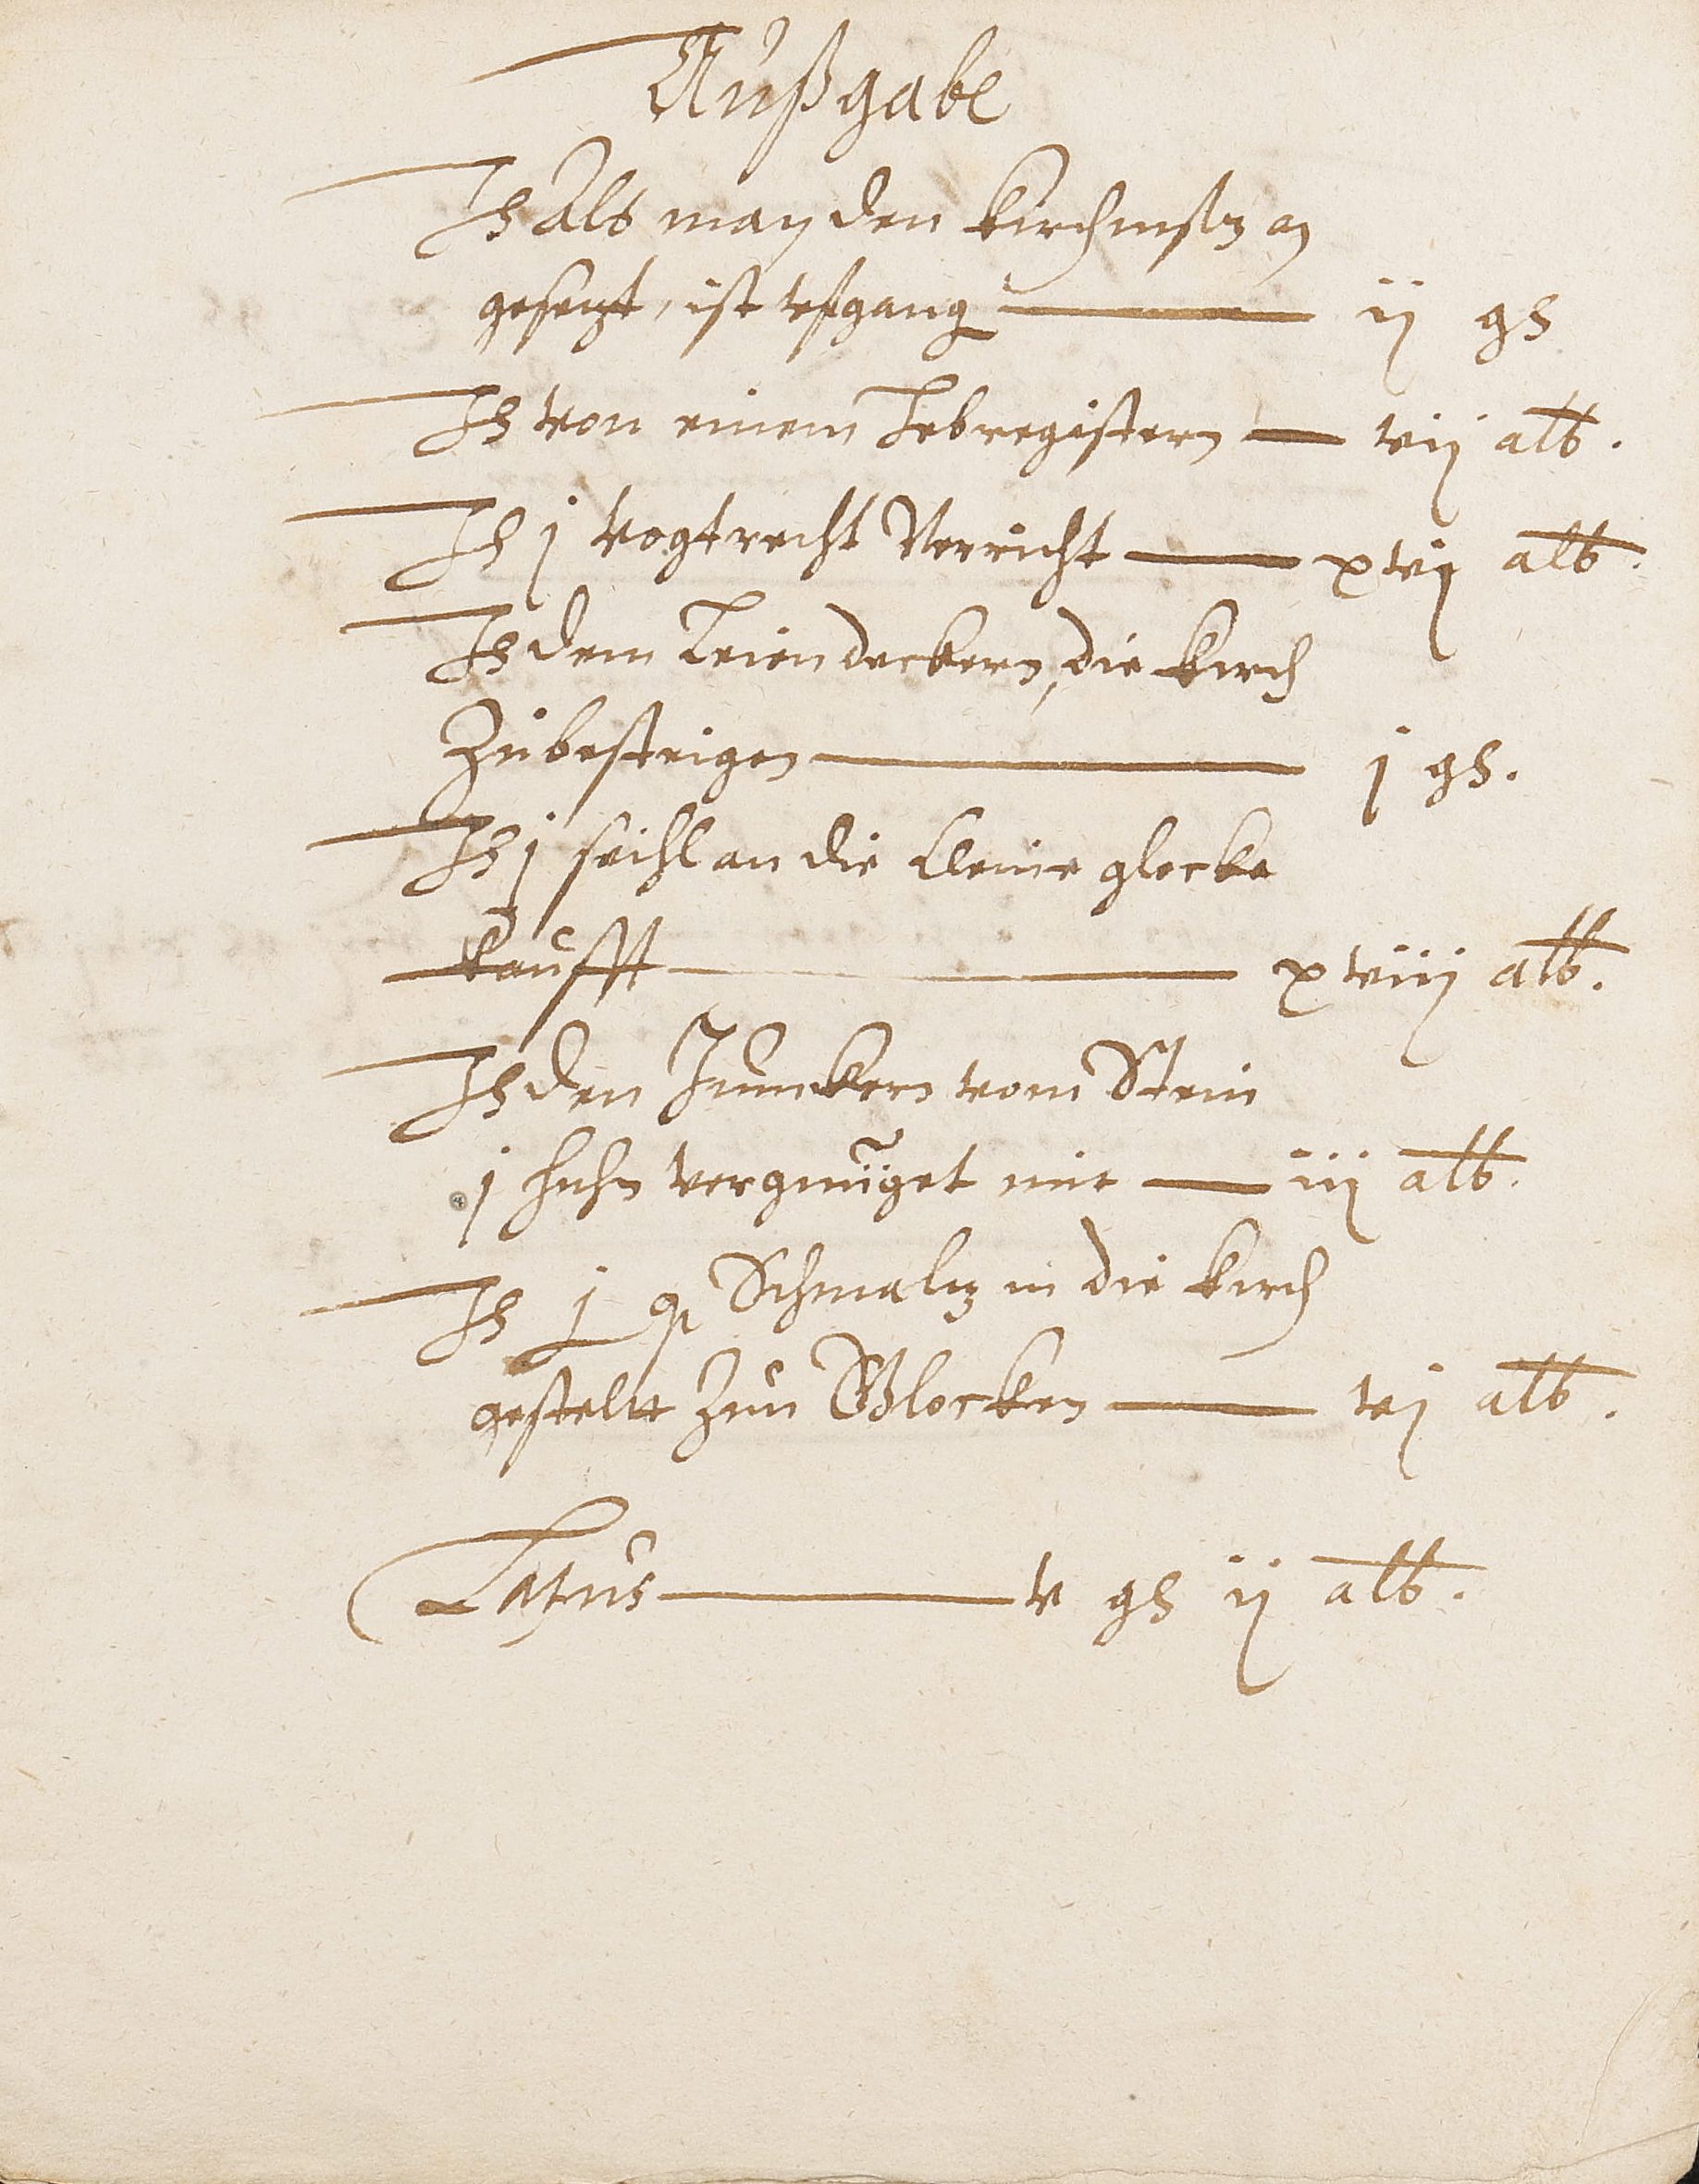 Außgabe
It Alß man den Kirchmstr an
gesetzt, ist vffgang — ij gl
It von einem hebregistern — vij alb.
It j Vogtrecht Verricht — xvij alb.
It dem Leiendeckern, die Kirch
Zubesteigen — j gl.
It j seihl an die kleine glocke
kaufft — xviij alb.
It den Junckern vom Stein
j huhn vergnüget mit — iij alb.
It j Schmaltz in die Kirch
gestelt zun Glocken — vj alb.
Latus — v gl ij alb.